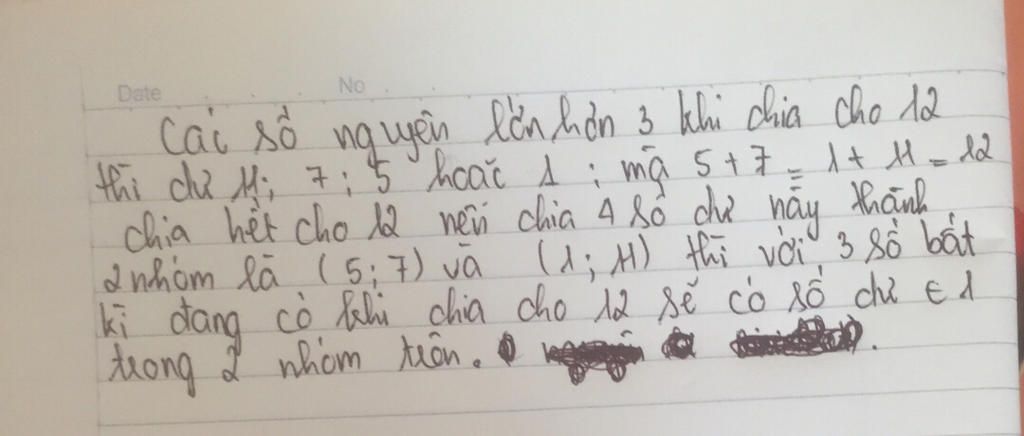 Date No
Các số nguyên lớn hơn 3 khi chia cho 12
thì dư 11; 7; 5 hoặc 1; mà 5 + 7 = 1 + 11 = 12
chia hết cho 12 nên chia 4 số dư này thành
2 nhóm là (5; 7) và (1; 11) thì với 3 số bất
kì đang có khi chia cho 12 sẽ có số dư ∈ 1
trong 2 nhóm trên.